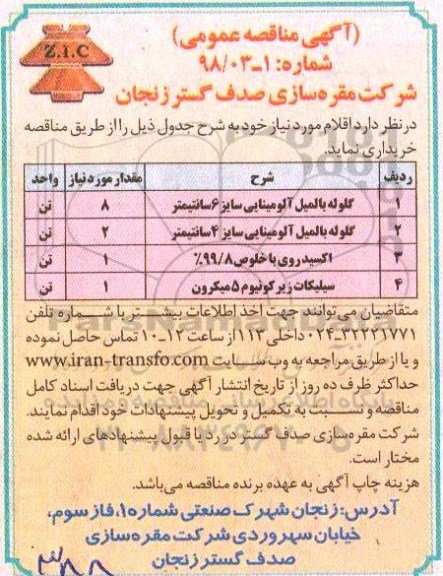 Z.I.C
(آگهی مناقصه عمومی)
شماره: ۱-۹۸/۰۳
شرکت مقره‌سازی صدف گستر زنجان
در نظر دارد اقلام مورد نیاز خود به شرح جدول ذیل را از طریق مناقصه
خریداری نماید.
ردیف شرح مقدار مورد نیاز واحد
۱ گلوله بالمیل آلومینایی سایز ۶ سانتیمتر ۸ تن
۲ گلوله بالمیل آلومینایی سایز ۴ سانتیمتر ۲ تن
۳ اکسید روی با خلوص ۹۹/۸٪ ۱ تن
۴ سیلیکات زیرکونیوم ۵ میکرون ۱ تن
متقاضیان می‌توانند جهت اخذ اطلاعات بیشتر با شماره تلفن
۳۲۲۲۱۷۷۱-۰۲۴ داخلی ۱۱۳ از ساعت ۱۲-۱۰ تماس حاصل نموده
و یا از طریق مراجعه به وب سایت www.iran-transfo.com
حداکثر ظرف ده روز از تاریخ انتشار آگهی جهت دریافت اسناد کامل
مناقصه و نسبت به تکمیل و تحویل پیشنهادات خود اقدام نمایند.
شرکت مقره‌سازی صدف گستر در رد یا قبول پیشنهادهای ارائه شده
مختار است.
هزینه چاپ آگهی به عهده برنده مناقصه می‌باشد.
آدرس: زنجان شهرک صنعتی شماره ۱، فاز سوم،
خیابان سهروردی شرکت مقره‌سازی
صدف گستر زنجان